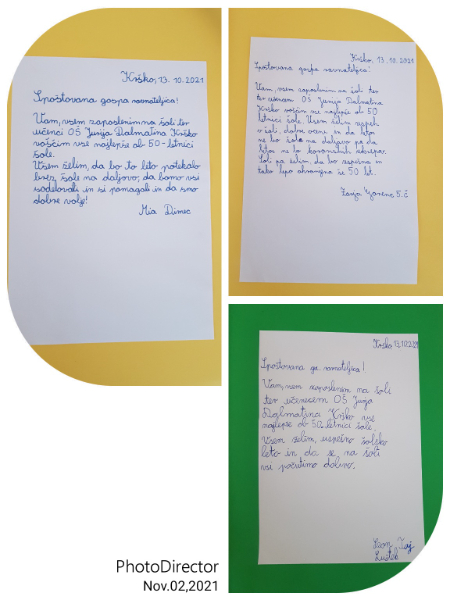 Krško, 13. 10. 2021
Spoštovana gospa ravnateljica!
Vam, vsem zaposlenim na šoli ter
učenci OŠ Jurija Dalmatina Krško
voščim vse najlepše ob 50-letnici
šole.
Vsem želim, da bo to leto potekalo
brez šole na daljavo, da bomo vsi
sodelovali in si pomagali in da smo
dobre volje!
Mia Dimec
Krško, 13. 10. 2021
Spoštovana gospa ravnateljica!
Vam, vsem zaposlenim na šoli ter
ter učencem OŠ Jurija Dalmatina
Krško voščim vse najlepše ob 50
letnici šole. Vsem želim uspeh
v šoli, dobre ocene in da letos
ne bo šole na daljavo po da
letos ne bo
šoli pa želim, da bo uspešna in
tako lepo ohranjena še 50 let.
Zarja 5. č
Krško 13.10.2021
Spoštovana ga. ravnateljica!
Vam, vsem zaposlenim na šoli
ter učencem OŠ Jurija
Dalmatina Krško vse
najlepše ob 50-letnici šole.
Vsem želim, uspešno šolsko
leto in da se na šoli
vsi počutimo dobro.
Leon
Lustek
PhotoDirector
Nov.02,2021